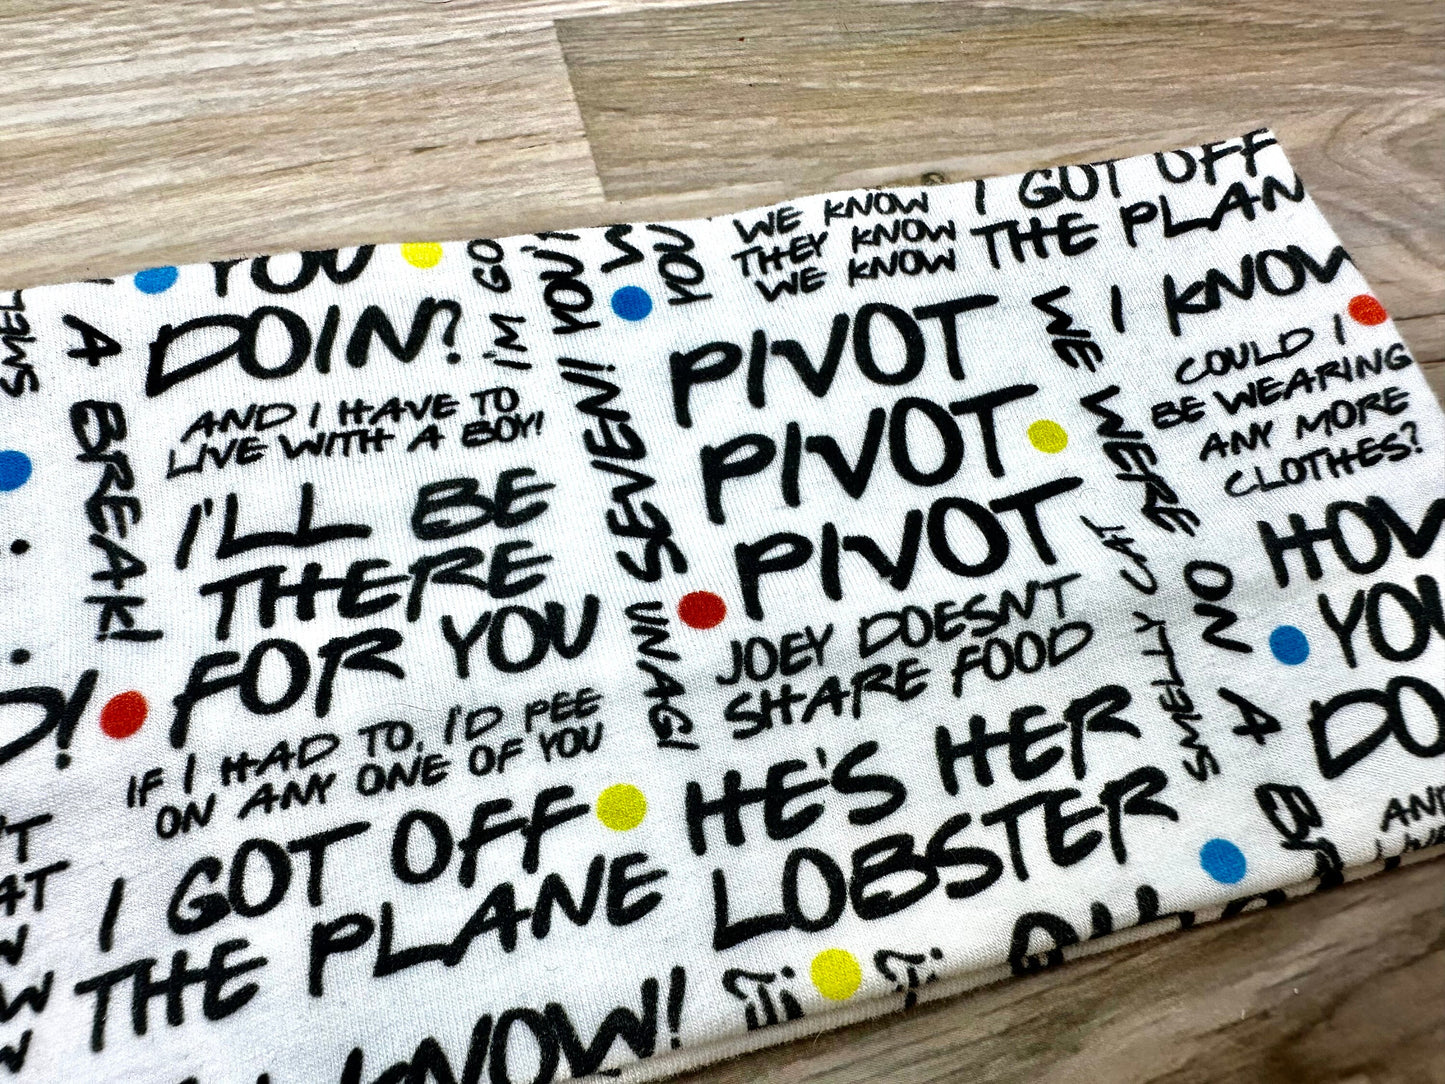 YOU
DOIN?
AND I HAVE TO
LIVE WITH A BOY!
I'LL BE
THERE
FOR YOU
IF I HAD TO, I'D PEE
ON ANY ONE OF YOU
I GOT OFF
THE PLANE
KNOW!
A BREAK!
SMEL
I'M GO
YOU!
SEVEN!
UNAGI
YOU
WE KNOW
THEY KNOW
WE KNOW
PIVOT
PIVOT
PIVOT
JOEY DOESN'T
SHARE FOOD
HE'S HER
LOBSTER
I GOT OFF
THE PLAN
WE WERE ON
A BR
SMELLY CAT
I KNOW
COULD I
BE WEARING
ANY MORE
CLOTHES?
HOW
YOU
DO
AND